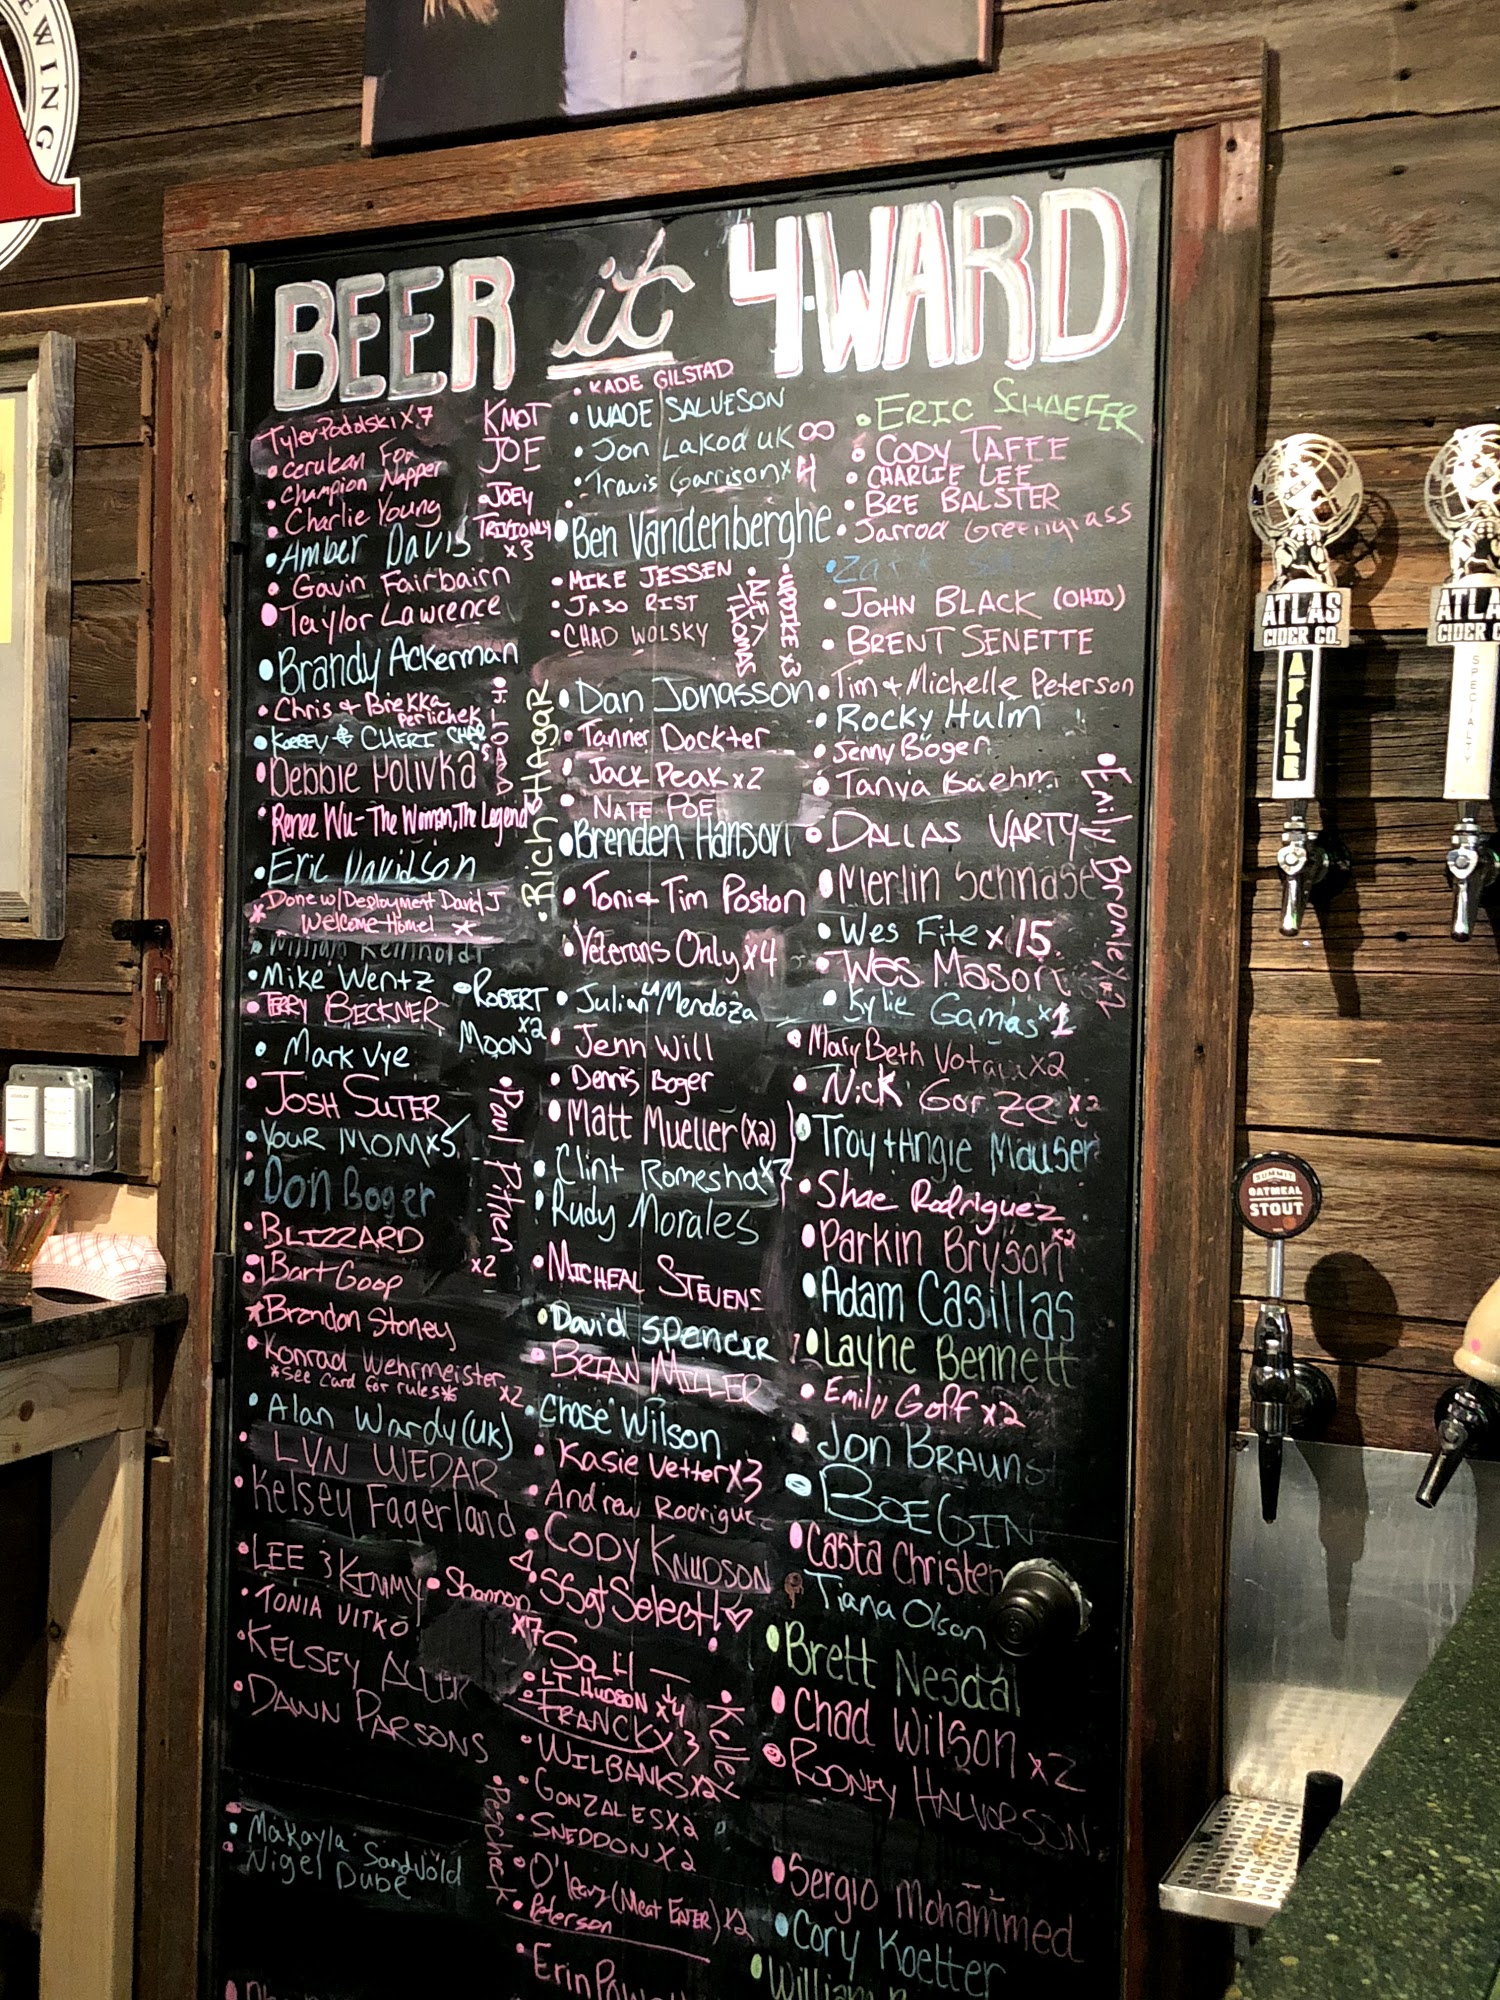 WING
BEER it 4WARD
Tyler Podolski x7
• Cerulean Fox
• Champion Napper
• Charlie Young
• Amber Davis
• Gavin Fairbairn
• Taylor Lawrence
• Brandy Ackerman
• Chris & Brekka
Perlichek
• Korey & CHERI
• Debbie Polivka
• Renee Wu - The Woman, The Legend
• Eric Davidson
Done w/Deployment David J
* Welcome Home! *
William Reinholdt
• Mike Wentz
• TERRY BECKNER
• Mark Vye
• JOSH SUTER
• YOUR MOM x5
• Don Boger
• BLIZZARD
• Bart Goop
* Brandon Stoney
• Konrad Wehrmeister x2
*See Card for rules*
• Alan Wardy (UK)
• LVN WEDAR
• Kelsey Fagerland
• LEE & KIMMY
• TONIA VITKO
• KELSEY
• DAWN PARSONS
• Makayla Sandvold
• Nigel Dube
KMOT
JOE
• JOEY
TRIVIONLY
x3
• Rich HAgaR
• ROBERT
MOON x2
• Paul Pitner
x2
• Shannon
x7
• KADE GILSTAD
• WADE SALVESON
• Jon Lakoduk ∞
• Travis Garrison x4
• Ben Vandenberghe
• MIKE JESSEN
• JASO RIST
• CHAD WOLSKY
• ALEX THOMAS
• UPDIKE x3
• Dan Jonasson
• Tanner Dockter
• Jack Peak x2
• NATE POE
• Brenden Hanson
• Toni & Tim Poston
• Veterans Only x4
• Julian LA Mendoza
• Jenn Will
• Dennis Boger
• Matt Mueller (x2)
• Clint Romesha x7
• Rudy Morales
• MICHEAL STEVENS
• David SPENCER
• BRIAN MILLER
• Chase Wilson
• Kasie Vetter x3
• Andrew Rodriguez
• CODY KNUDSON
• SSgt Select! ♡
• LT HUDSON x4
• FRANCK x3
• Kelley
• WILBANKS x2
• GONZALES x2
• SNEDDON x2
• O'leary (Meat EATER) x2
• Peterson
• Pescheck
• Erin
• ERIC SCHAEFER
• CODY TAFEE
• CHARLIE LEE
• BRE BALSTER
• Jarrod Greenglass
• Zack
• JOHN BLACK (OHIO)
• BRENT SENETTE
• Tim & Michelle Peterson
• Rocky Hulm
• Jenny Böger
• Tanya Baehm
• DALLAS VARTY
• Merlin Schnase
• Emily Bromley x2
• Wes Fite x15
• Wes Mason
• Kylie Gamas x1
• Mary Beth Votava x2
• Nick Gorze x2
• Troy + Angie Mauser
• Shae Rodriguez
• Parkin Bryson x2
• Adam Casillas
• Layne Bennett
• Emily Goff x2
• Jon BRAUNS
• BOEGIN
• Casta Christen
• Tiana Olson
• Brett Nesdal
• Chad Wilson x2
• RODNEY HALVORSON
• Sergio Mohammed
• Cory Koetter
• William
ATLAS
CIDER CO.
APPLE
ATLA
CIDER C
SPECIALTY
SUMMIT
OATMEAL
STOUT